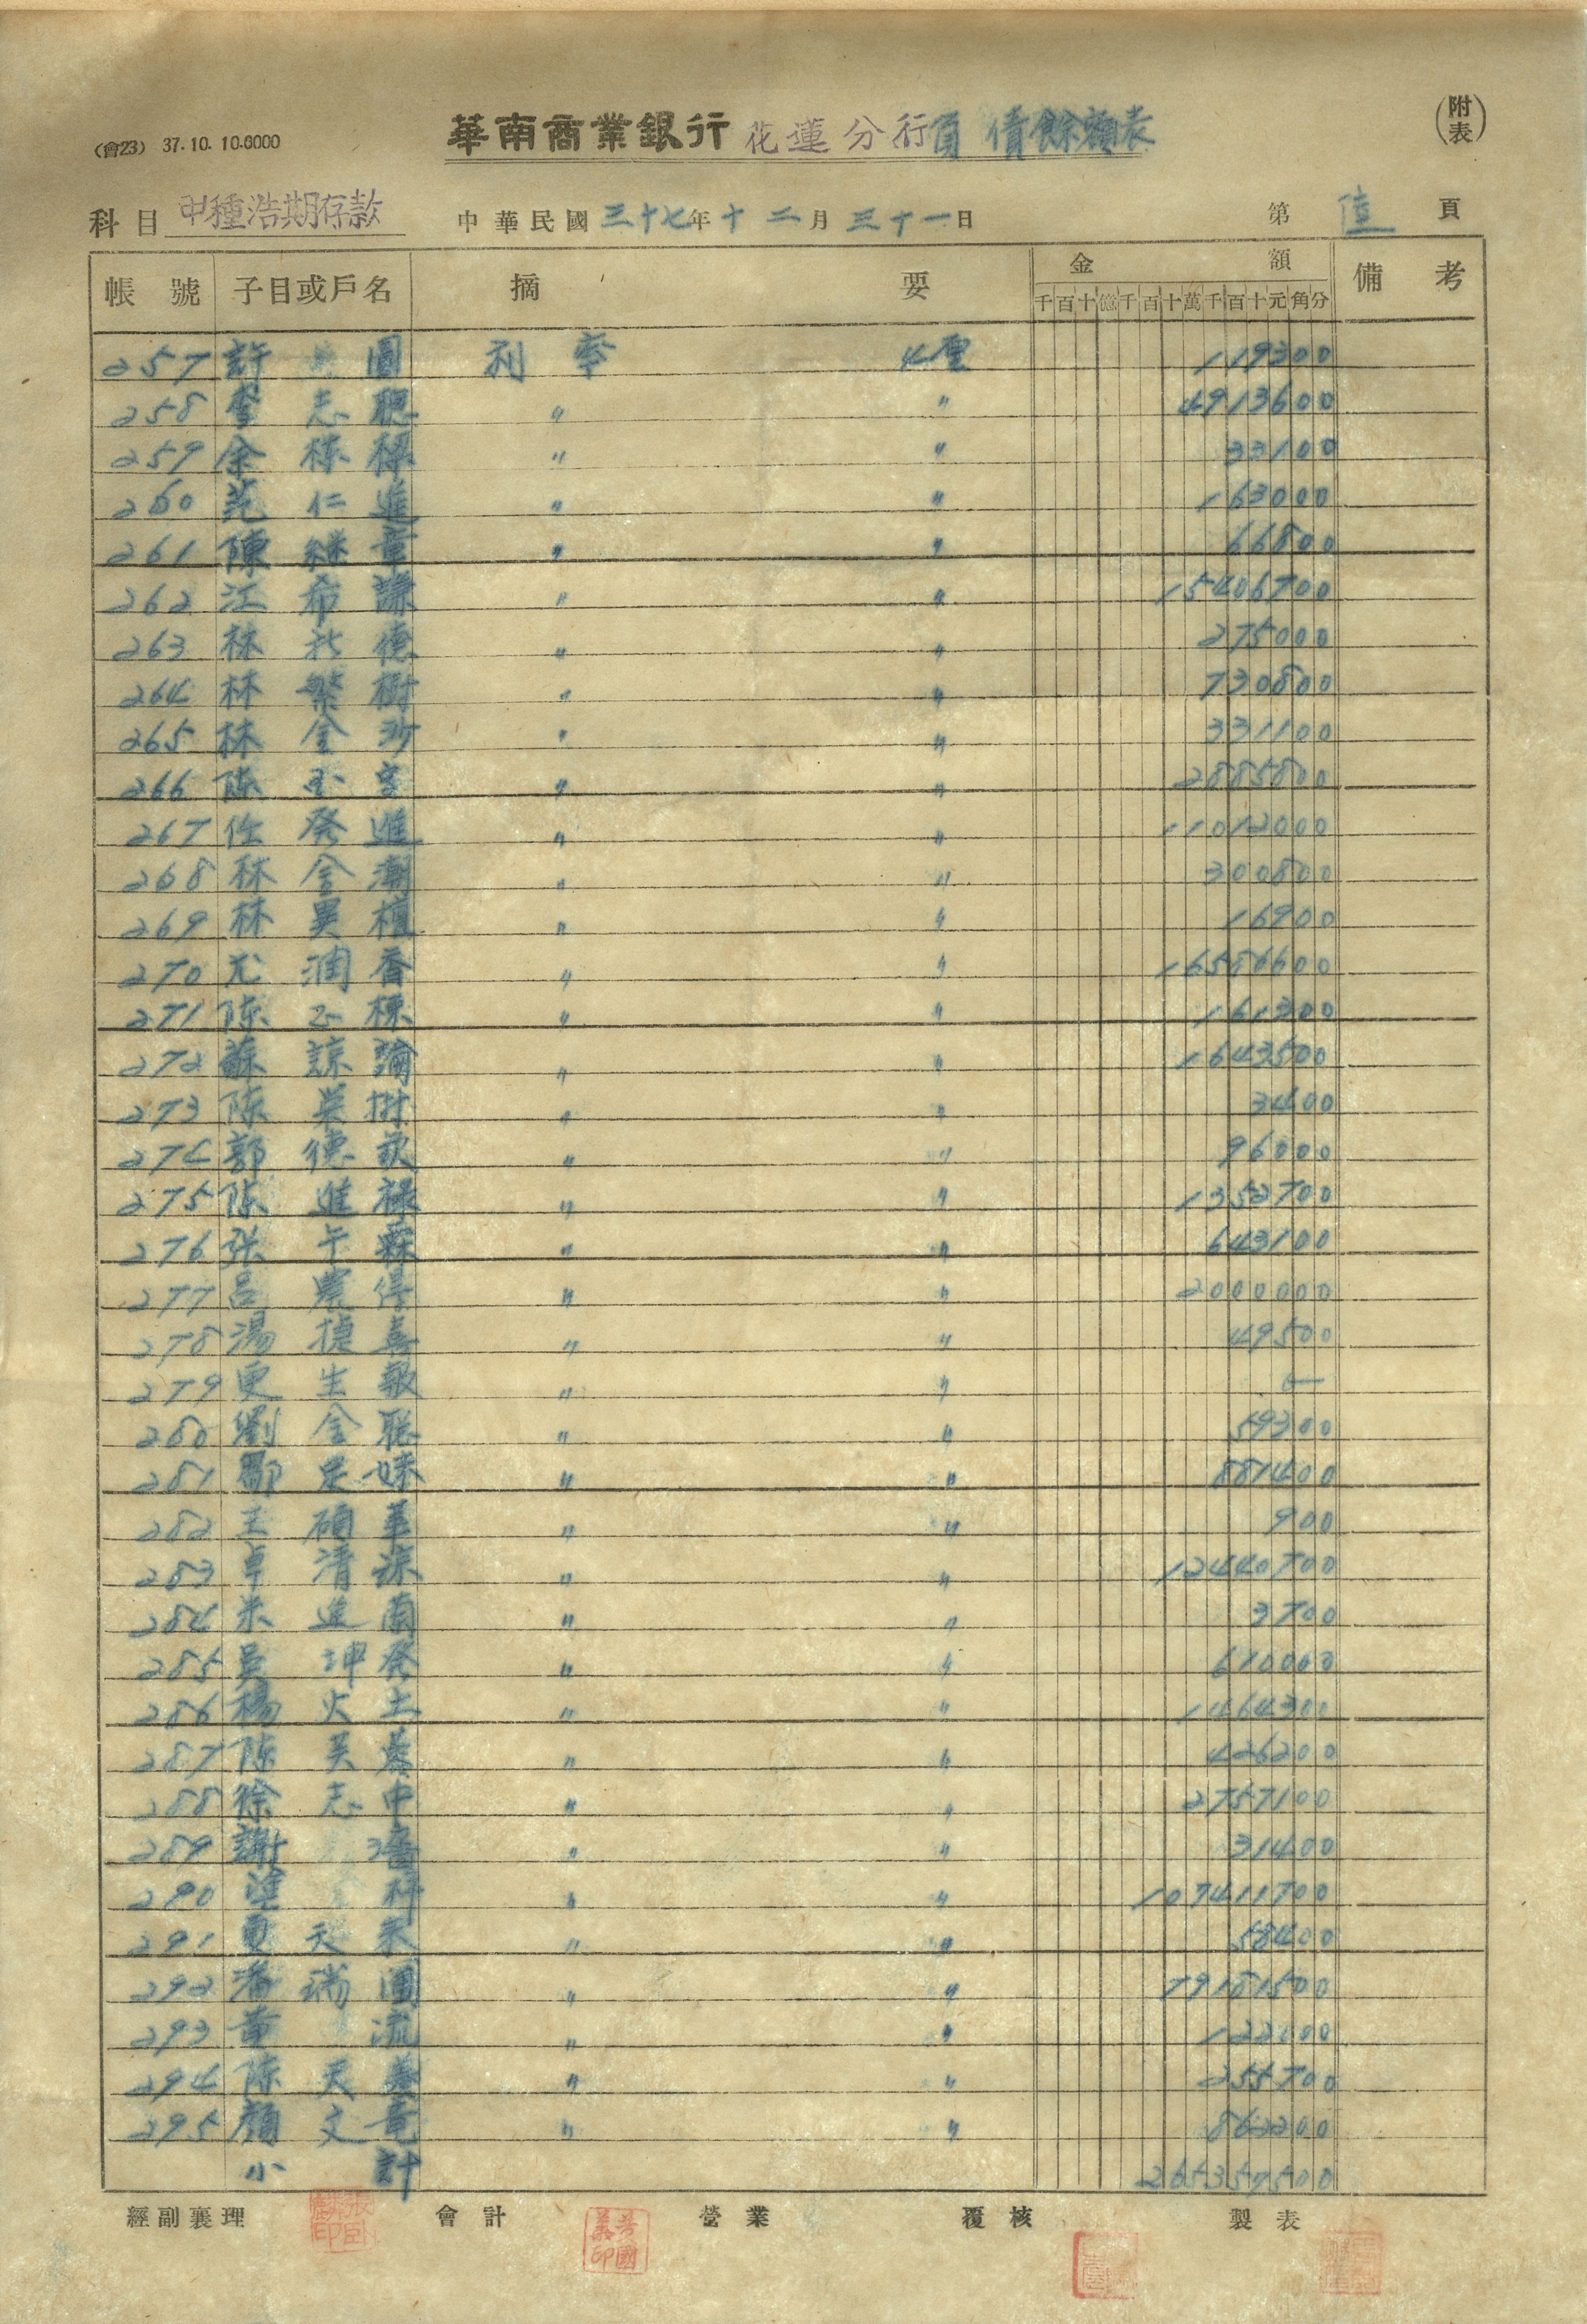 (會23) 37.10. 10.0000
華南商業銀行 花蓮分行 負債餘額表
(附表)
科目 甲種活期存款 中華民國三十七年十二月三十一日 第 頁
帳號 子目或戶名 摘要 金額 備考
千百十億千百十萬千百十元角分
257 許 圓 利率 4厘 119300
258 志聰 〃 〃 4913600
259 余樑 〃 〃 33100
260 范仁進 〃 〃 163000
261 陳継章 〃 〃 66800
262 江希謙 〃 〃 15406700
263 林德 〃 〃 275000
264 林繁樹 〃 〃 730800
265 林金沙 〃 〃 331100
266 陳 〃 〃 2885800
267 發進 〃 〃 11012000
268 林金潮 〃 〃 300800
269 林 〃 〃 16900
270 尤潤香 〃 〃 16586600
271 陳正標 〃 〃 161300
272 蘇諒 〃 〃 1643500
273 陳 〃 〃 3400
274 郭德欽 〃 〃 96000
275 陳進祿 〃 〃 1352700
276 張午霖 〃 〃 643100
277 呂 〃 〃 2000000
278 湯喜 〃 〃 49500
279 更生報 〃 〃 —
280 劉金聰 〃 〃 59300
281 鄒足妹 〃 〃 881400
282 王碩華 〃 〃 900
283 卓清 〃 〃 12440700
284 進蘭 〃 〃 3700
285 吳坤發 〃 〃 610000
286 楊火土 〃 〃 1464300
287 陳 〃 〃 426200
288 徐志中 〃 〃 2757100
289 謝 〃 〃 31400
290 塗 〃 〃 107411700
291 天 〃 〃 58400
292 潘瑞圓 〃 〃 79181500
293 黃 流 〃 〃 122000
294 陳天 〃 〃 255700
295 顏文 〃 〃 862200
小計 265357500
經副襄理 會計 營業 覆核 製表